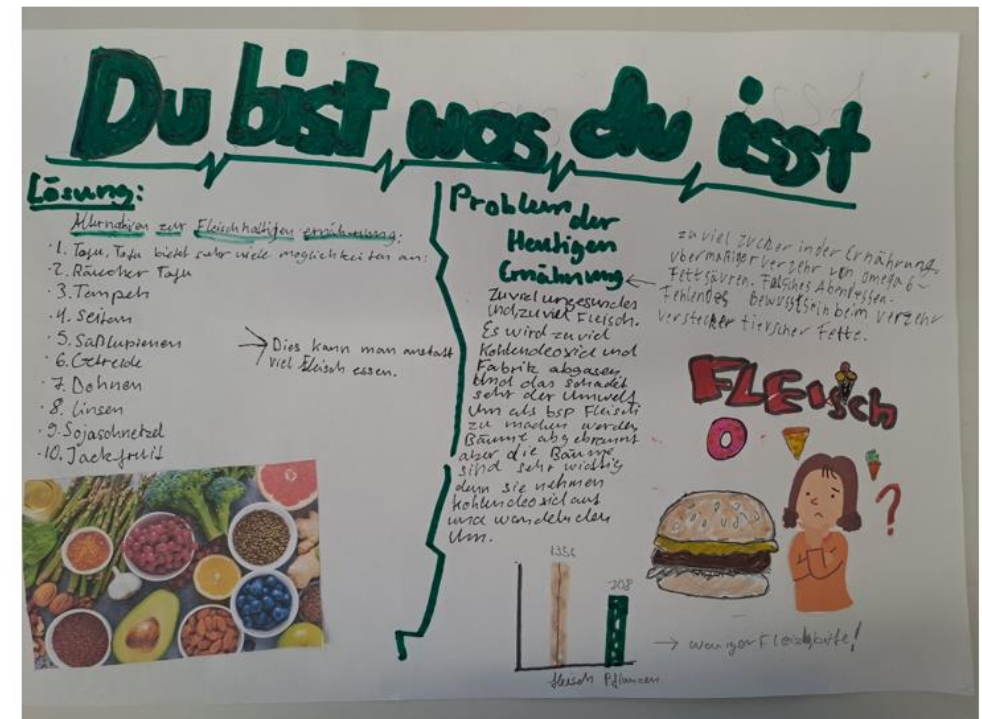 Du bist was du isst
Lösung:
Alternativen zur Fleischhaltigen ernährung:
·1. Tofu, Tofu bietet sehr viele möglichkeiten an:
·2. Räucher Tofu
·3. Tempeh
·4. Seitan
·5. Saßlupienen
·6. Getreide
·7. Bohnen
·8. Linsen
·9. Sojaschnetzel
·10. Jackfruit
→ Dies kann man anstatt
viel fleisch essen.
Problem der
Heutigen
Ernährung
Zu viel ungesundes
und zu viel Fleisch.
Es wird zu viel
Kohlendeoxid und
Fabrik abgasen
Und das schadet
sehr der Umwelt
Um als bsp Fleisch
zu machen werden
Bäume abgebrannt
aber die Bäume
sind sehr wichtig
denn sie nehmen
kohlendeoxid auf
und wandeln den
Um.
zu viel zucker in der Ernährung.
übermäßiger verzehr von omega 6-
Fettsäuren. Falsches Abendessen.
Fehlendes Bewusstsein beim verzehr
versteckter tierscher Fette.
FLEisch
?
1356
308
fleisch Pflanzen
→ weniger Fleisch bitte!